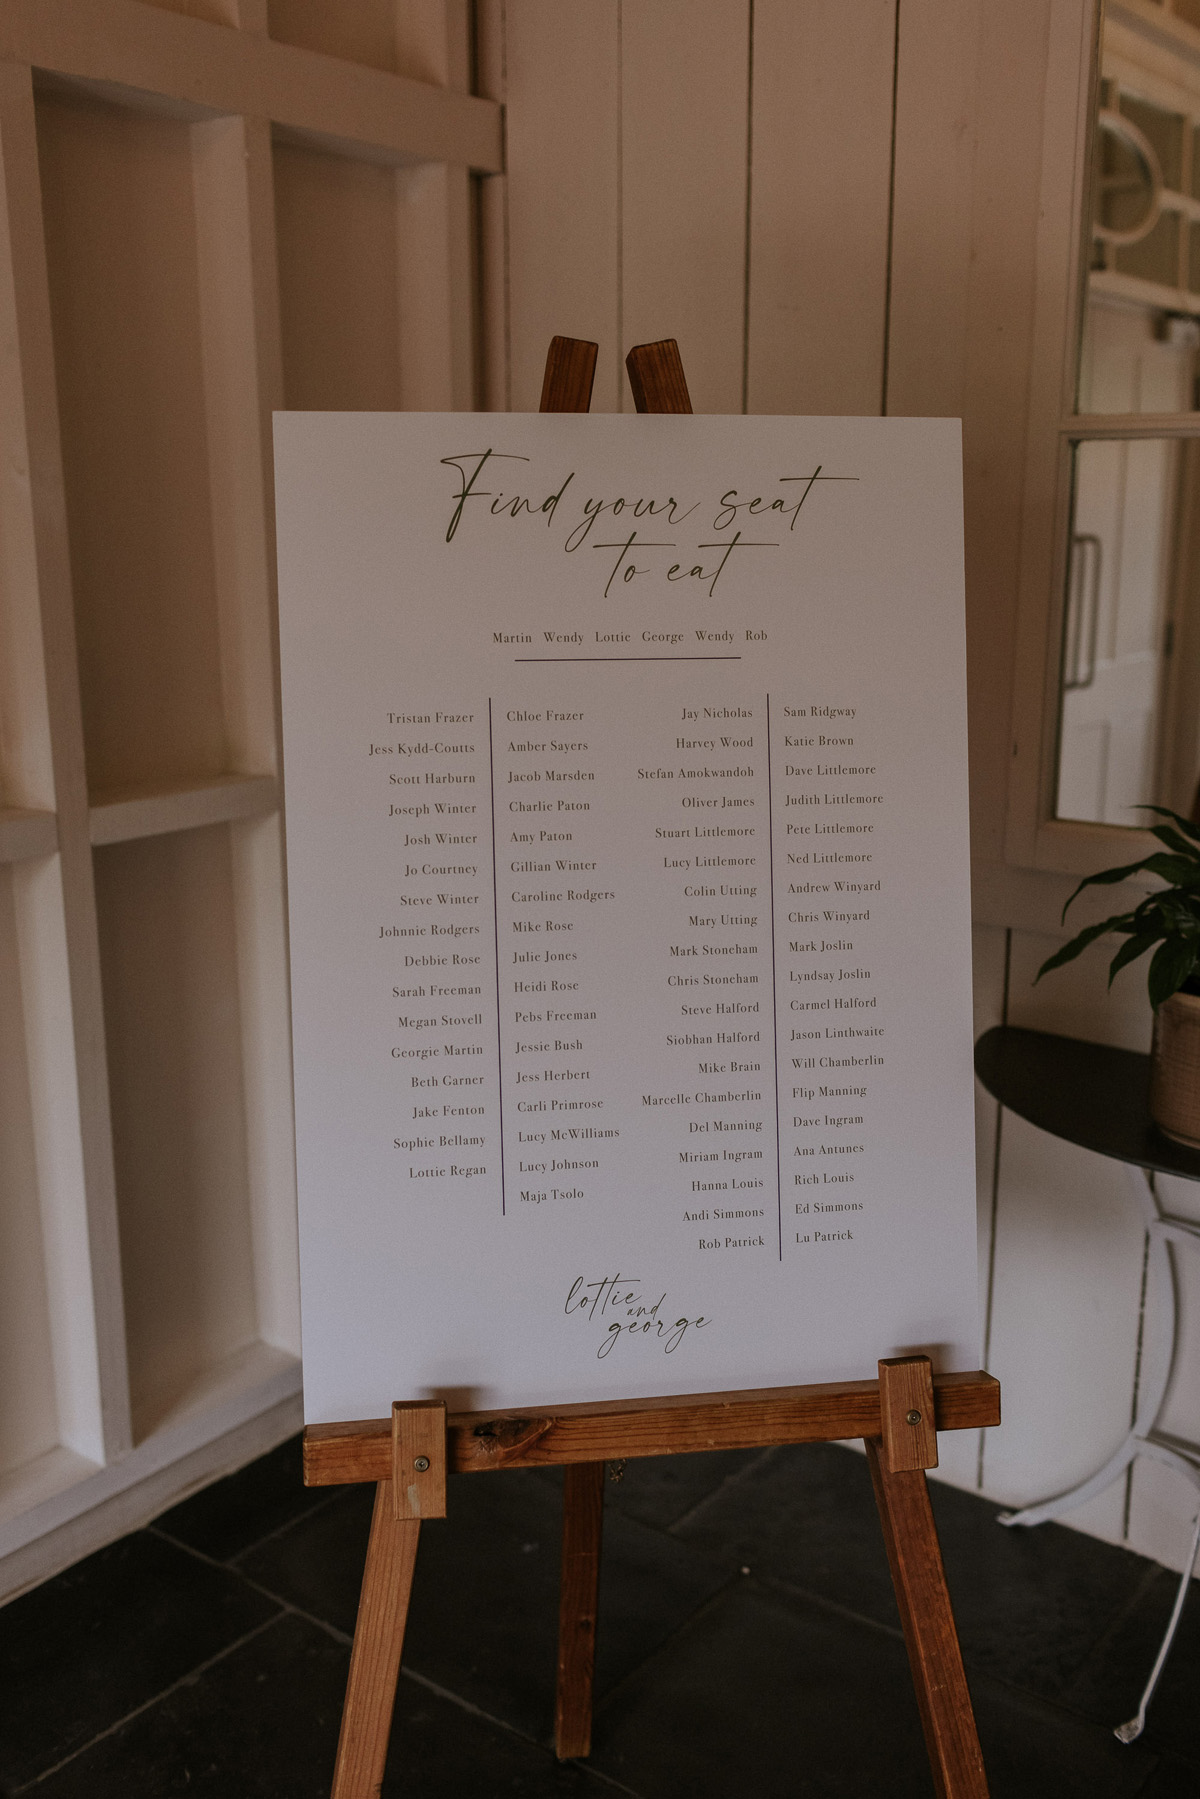 Find your seat
to eat
Martin Wendy Lottie George Wendy Rob
Tristan Frazer
Jess Kydd-Coutts
Scott Harburn
Joseph Winter
Josh Winter
Jo Courtney
Steve Winter
Johnnie Rodgers
Debbie Rose
Sarah Freeman
Megan Stovell
Georgie Martin
Beth Garner
Jake Fenton
Sophie Bellamy
Lottie Regan
Chloe Frazer
Amber Sayers
Jacob Marsden
Charlie Paton
Amy Paton
Gillian Winter
Caroline Rodgers
Mike Rose
Julie Jones
Heidi Rose
Pebs Freeman
Jessie Bush
Jess Herbert
Carli Primrose
Lucy McWilliams
Lucy Johnson
Maja Tsolo
Jay Nicholas
Harvey Wood
Stefan Amokwandoh
Oliver James
Stuart Littlemore
Lucy Littlemore
Colin Utting
Mary Utting
Mark Stoneham
Chris Stoneham
Steve Halford
Siobhan Halford
Mike Brain
Marcelle Chamberlin
Del Manning
Miriam Ingram
Hanna Louis
Andi Simmons
Rob Patrick
Sam Ridgway
Katie Brown
Dave Littlemore
Judith Littlemore
Pete Littlemore
Ned Littlemore
Andrew Winyard
Chris Winyard
Mark Joslin
Lyndsay Joslin
Carmel Halford
Jason Linthwaite
Will Chamberlin
Flip Manning
Dave Ingram
Ana Antunes
Rich Louis
Ed Simmons
Lu Patrick
lottie
and
george